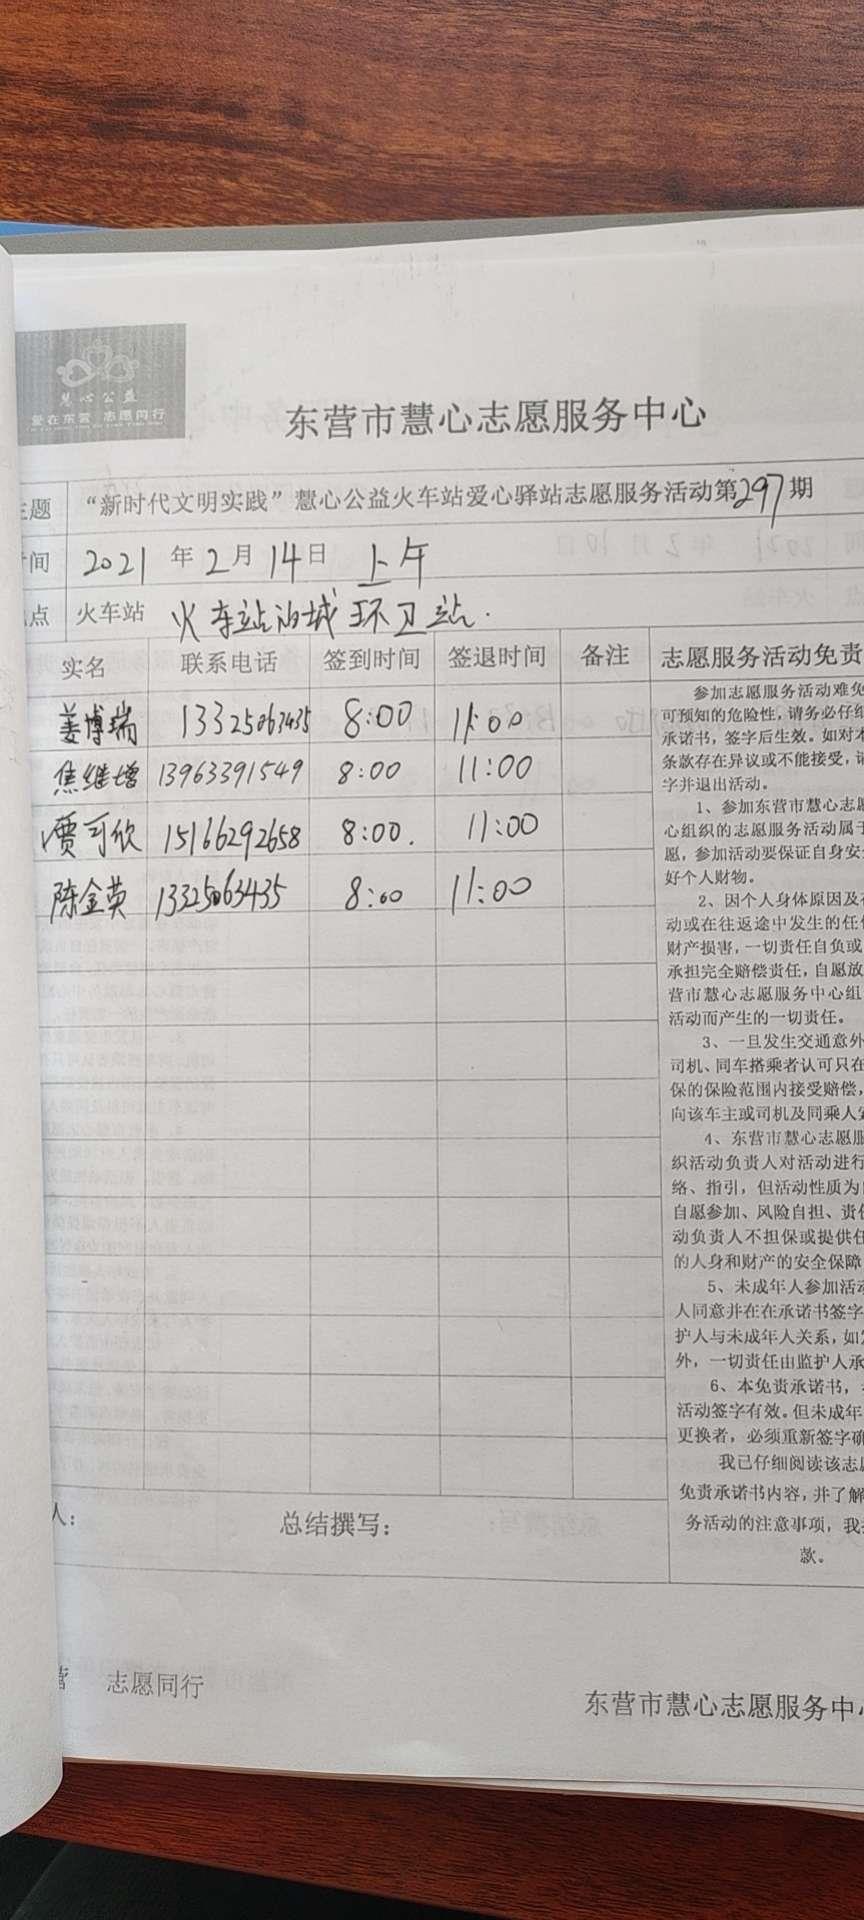 慧心公益
爱在东营 志愿同行
东营市慧心志愿服务中心
主题 “新时代文明实践”慧心公益火车站爱心驿站志愿服务活动第297期
时间 2021年2月14日 上午
地点 火车站 火车站油城环卫站.
实名 联系电话 签到时间 签退时间 备注 志愿服务活动免责
姜博瑞 13325063435 8:00 11:00
焦继增 13963391549 8:00 11:00
贾可欣 15166292658 8:00. 11:00
陈金英 13325063435 8:00 11:00
参加志愿服务活动难免
可预知的危险性,请务必仔细
承诺书,签字后生效。如对本
条款存在异议或不能接受,请
字并退出活动。
1、参加东营市慧心志愿
心组织的志愿服务活动属于
愿,参加活动要保证自身安全
好个人财物。
2、因个人身体原因及在
动或在往返途中发生的任何
财产损害,一切责任自负或
承担完全赔偿责任,自愿放
营市慧心志愿服务中心组
活动而产生的一切责任。
3、一旦发生交通意外
司机、同车搭乘者认可只在
保的保险范围内接受赔偿,
向该车主或司机及同乘人
4、东营市慧心志愿服
织活动负责人对活动进行
络、指引,但活动性质为
自愿参加、风险自担、责任
动负责人不担保或提供任
的人身和财产的安全保障
5、未成年人参加活动
人同意并在在承诺书签字
护人与未成年人关系,如
外,一切责任由监护人承
6、本免责承诺书,
活动签字有效。但未成年
更换者,必须重新签字确
我已仔细阅读该志愿
免责承诺书内容,并了解
务活动的注意事项,我
款。
人: 总结撰写:
营 志愿同行
东营市慧心志愿服务中心